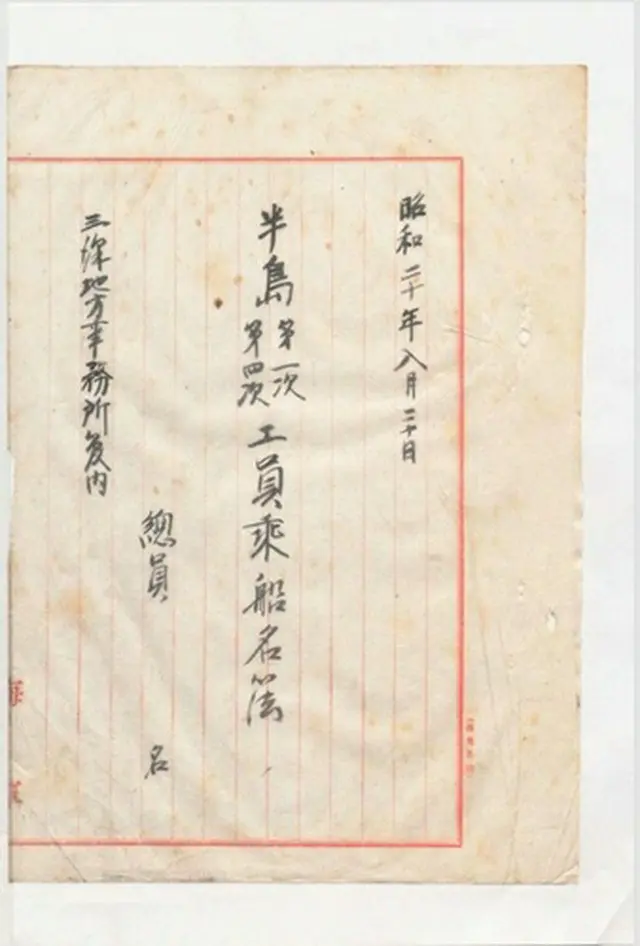 昭和二十年八月二十日
半島第一次第四次工員乘船名簿
總員 名
地方事務所
海